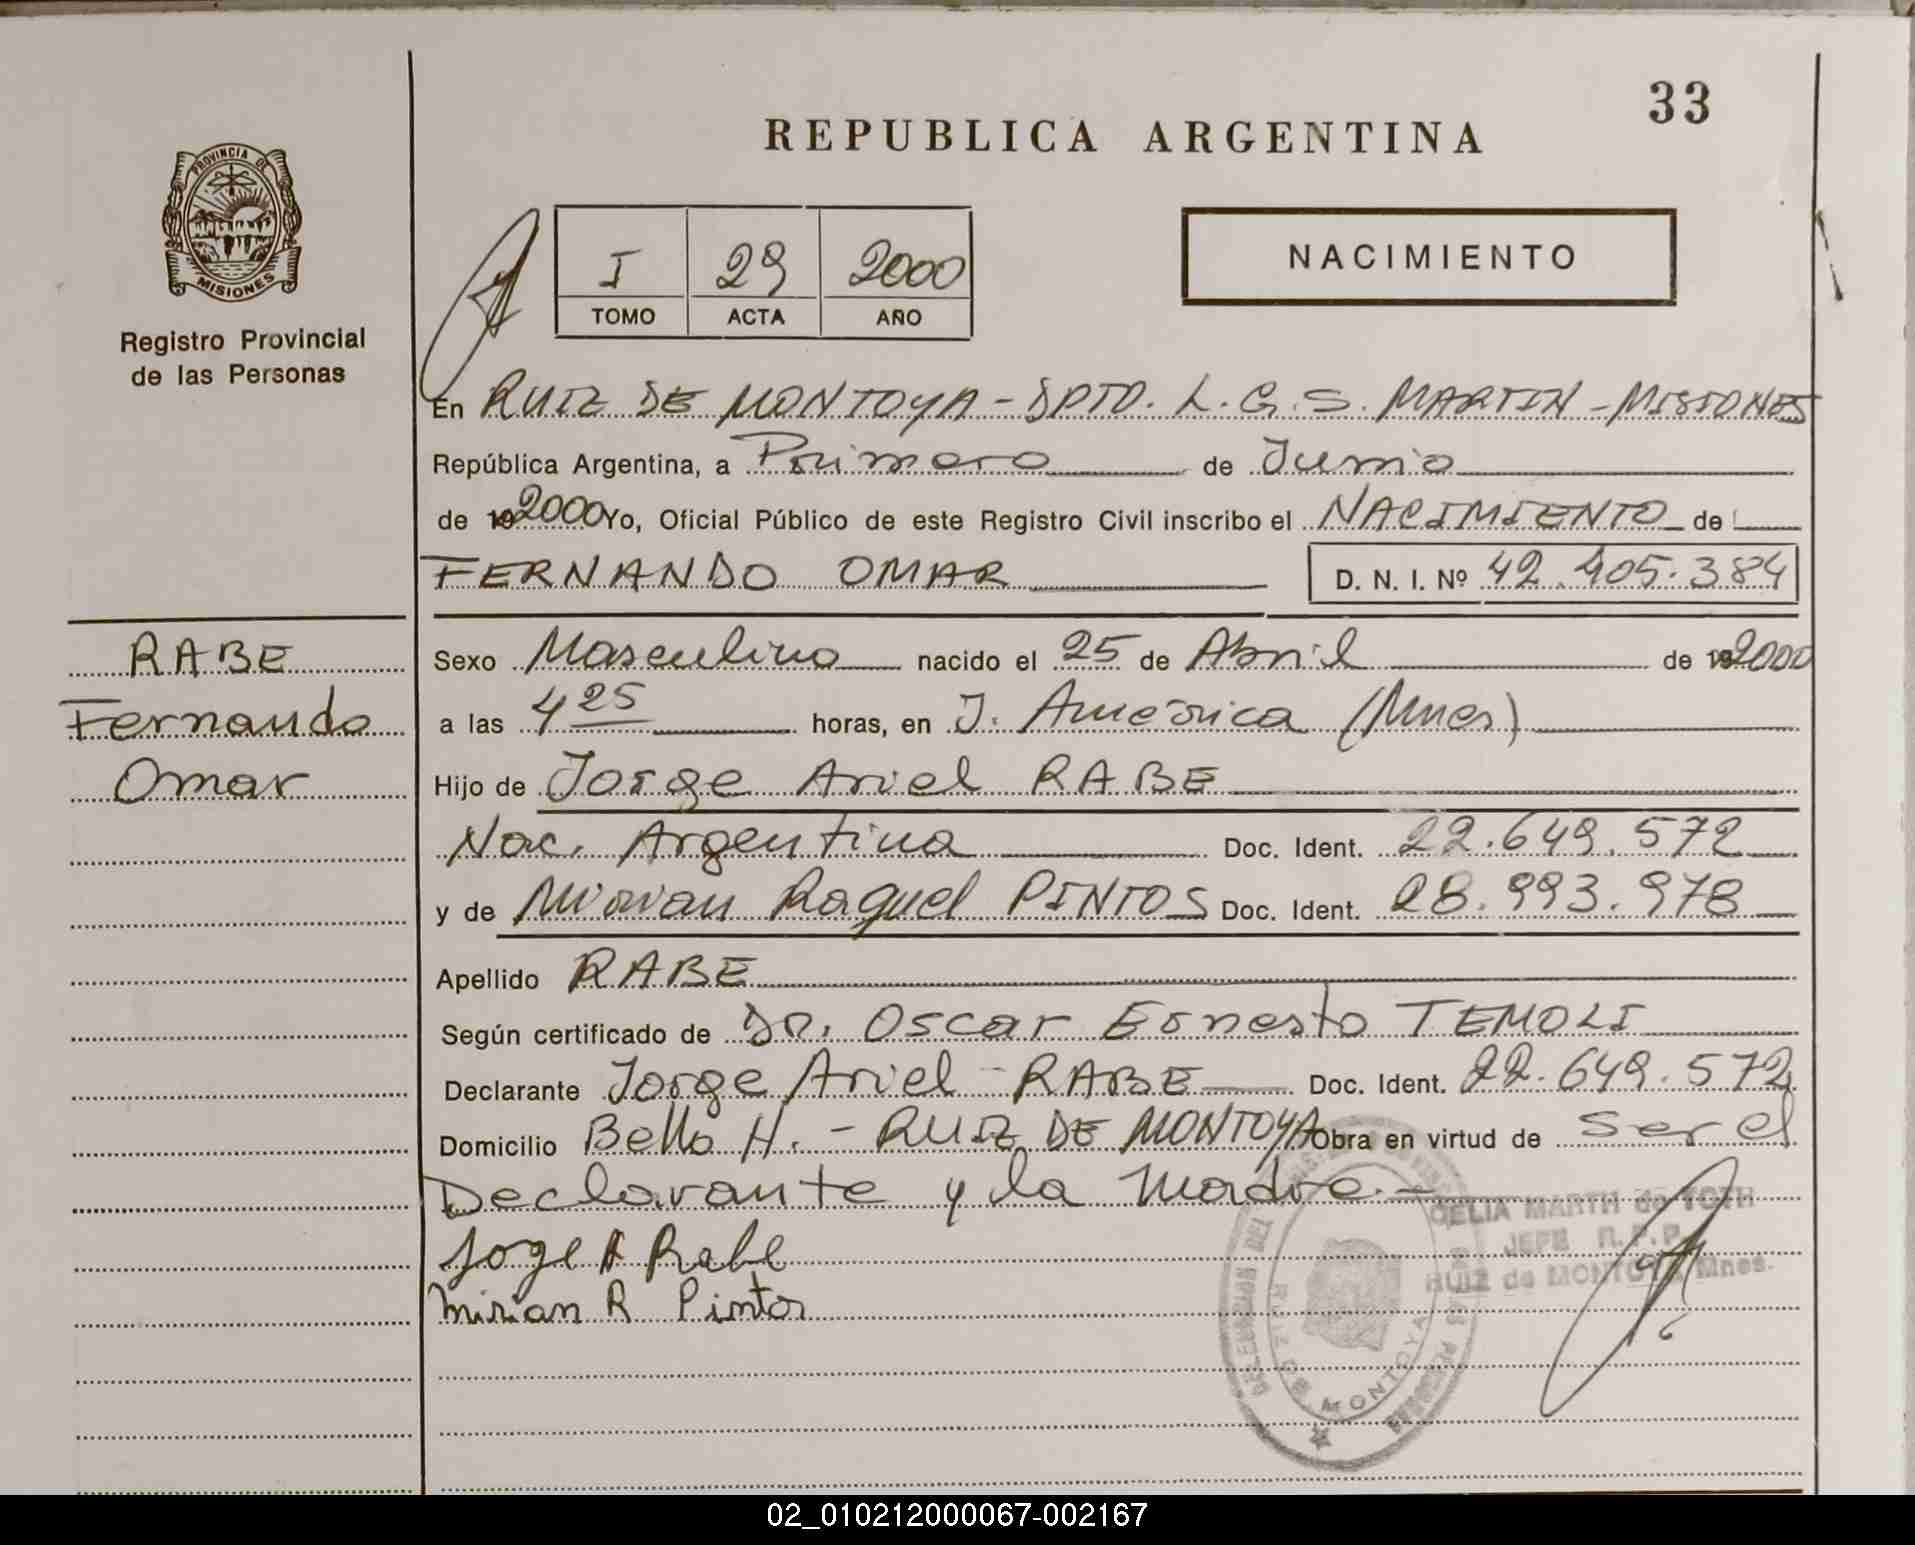 33
REPUBLICA ARGENTINA
PROVINCIA DE
MISIONES
Registro Provincial
de las Personas
I 29 2000
TOMO ACTA AÑO
NACIMIENTO
En RUIZ DE MONTOYA - DPTO. L. G. S. MARTIN - MISIONES
República Argentina, a Primero de Junio
de 19 2000 Yo, Oficial Público de este Registro Civil inscribo el NACIMIENTO de
FERNANDO OMAR D. N. I. Nº 42.405.384
RABE
Fernando
Omar
Sexo Masculino nacido el 25 de Abril de 19 2000
a las 4 25 horas, en J. América (Mnes)
Hijo de Jorge Ariel RABE
Nac. Argentina Doc. Ident. 22.649.572
y de Mirian Raquel PINTOS Doc. Ident. 28.993.978
Apellido RABE
Según certificado de Dr. Oscar Ernesto TEMOLI
Declarante Jorge Ariel RABE Doc. Ident. 22.649.572
Domicilio Bello H. - RUIZ DE MONTOYA Obra en virtud de ser el
Declarante y la Madre.-
Jorge A Rabe
Mirian R Pintos
CELIA MARTH de TOTH
JEFE R.P.P.
RUIZ de MONTOYA Mnes.
RUIZ DE MONTOYA
02_010212000067-002167